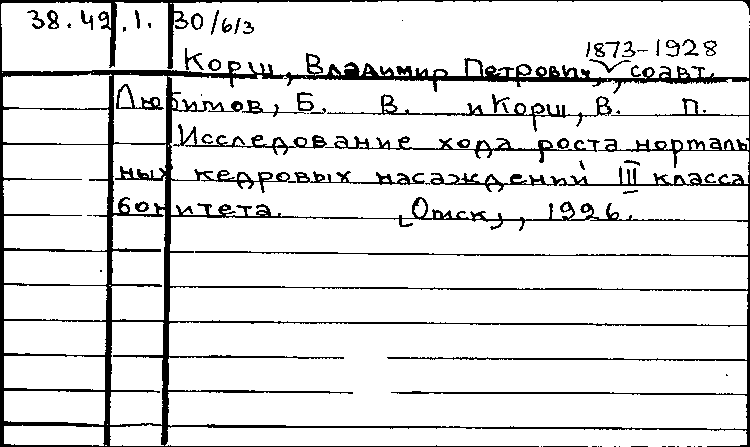 38.42.1. 30/6/3
1873-1928
Корш, Владимир Петрович, соавт.
Любимов, Б. В. и Корш, В. П.
Исследование хода роста нормаль
ных кедровых насаждений III класса
бонитета. [Омск], 1926.